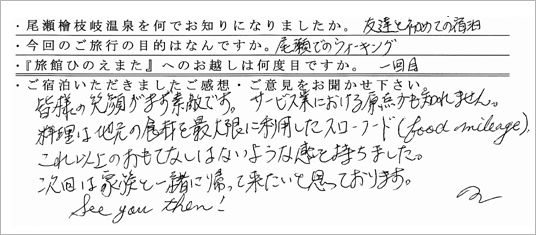 ・尾瀬檜枝岐温泉を何でお知りになりましたか。 友達と初めての宿泊
・今回のご旅行の目的はなんですか。 尾瀬でのウォーキング
・『旅館ひのえまた』へのお越しは何度目ですか。 一回目
・ご宿泊いただきましたご感想・ご意見をお聞かせ下さい。
皆様の笑顔がまず素敵です。サービス業における原点かも知れません。
料理は地元の食材を最大限に利用したスローフード(food mileage)。
これ以上のおもてなしはないような感を持ちました。
次回は家族と一緒に帰って来たいと思っております。
See you then!